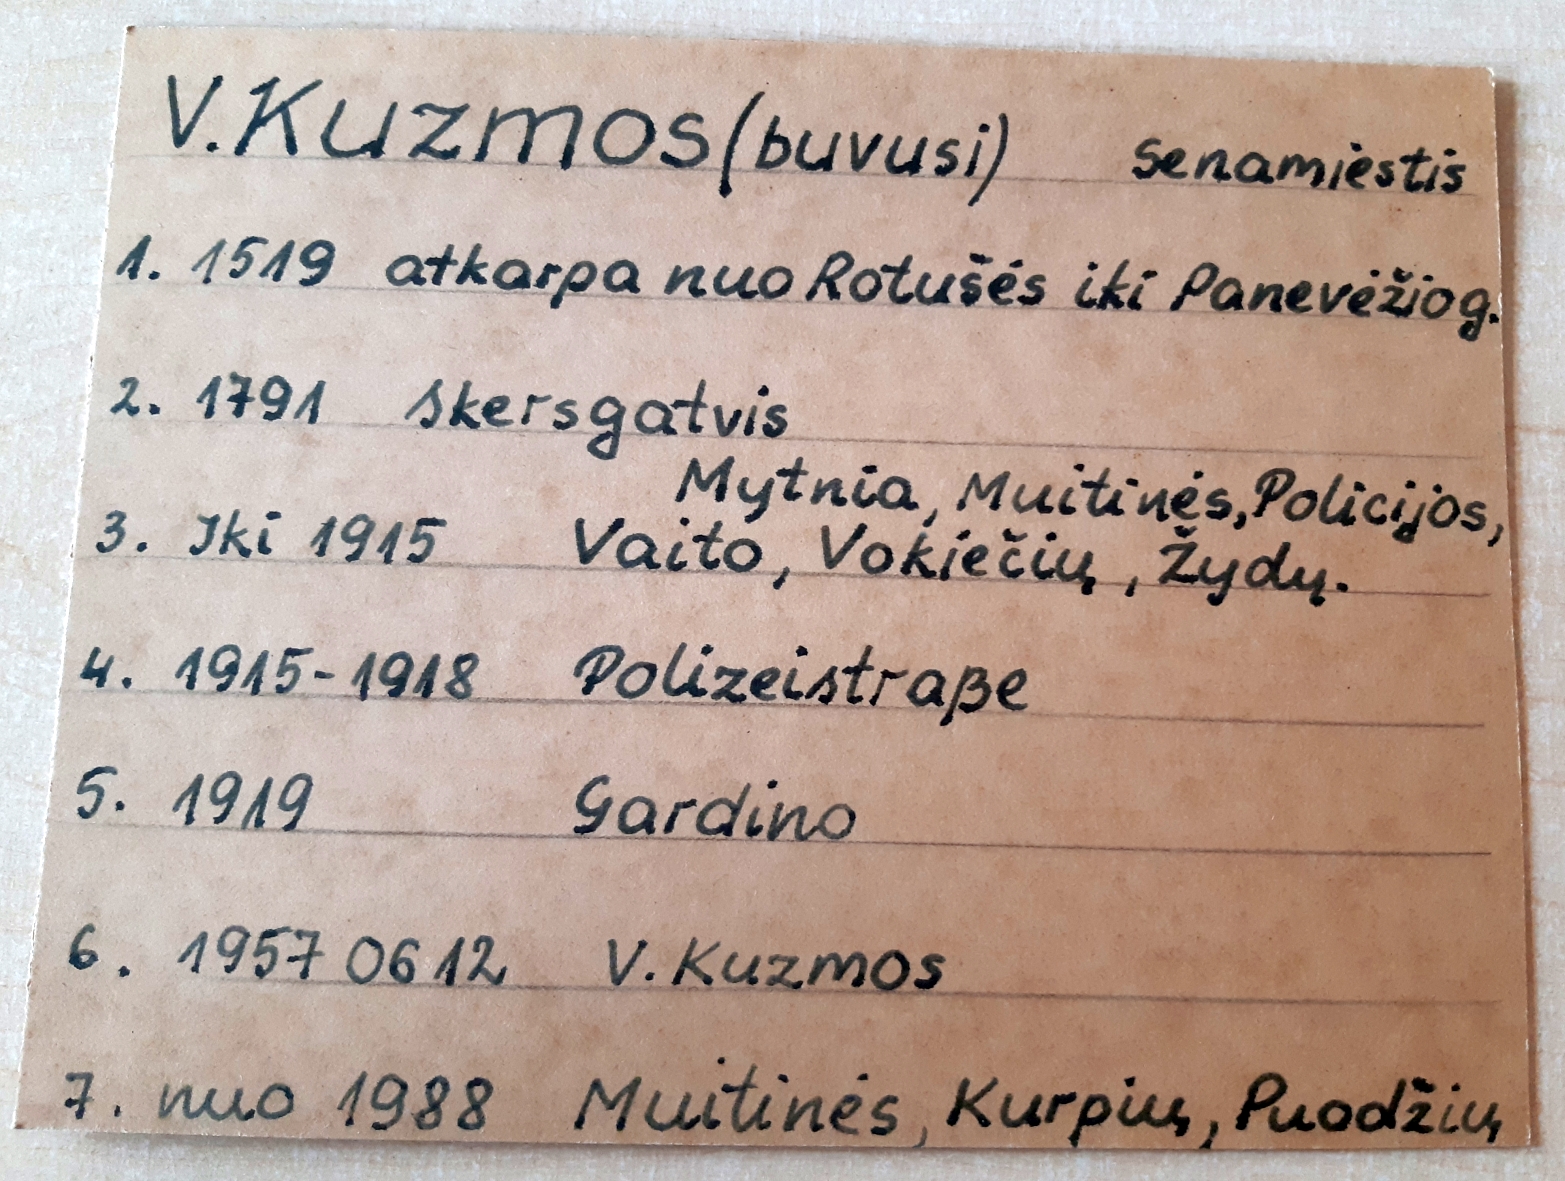 V. Kuzmos (buvusi) senamiestis
1. 1519 atkarpa nuo Rotušės iki Panevėžio g.
2. 1791 skersgatvis
Mytnia, Muitinės, Policijos,
3. Iki 1915 Vaito, Vokiečių, Žydų.
4. 1915-1918 Polizeistraße
5. 1919 Gardino
6. 1957 06 12 V. Kuzmos
7. nuo 1988 Muitinės, Kurpių, Puodžių